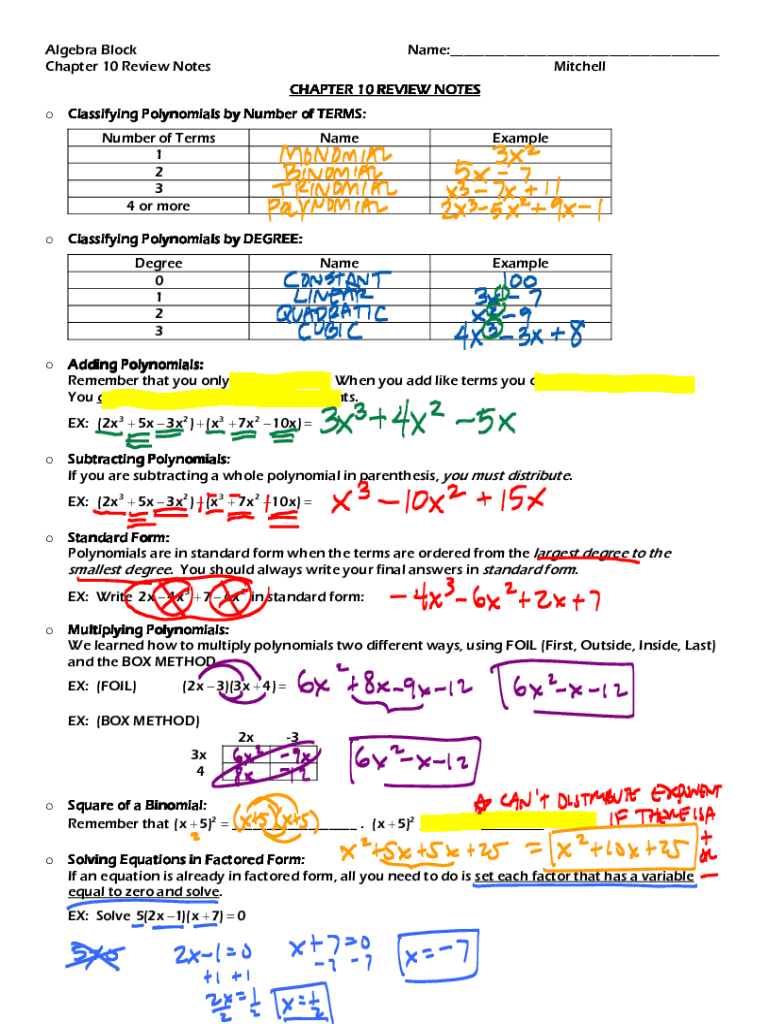 Algebra Block Name:
Chapter 10 Review Notes Mitchell
CHAPTER 10 REVIEW NOTES
o Classifying Polynomials by Number of TERMS:
Number of Terms Name Example
1 MONOMIAL 3x²
2 BINOMIAL 5x - 7
3 TRINOMIAL x³ - 7x + 11
4 or more POLYNOMIAL 2x³ - 5x² + 9x - 1
o Classifying Polynomials by DEGREE:
Degree Name Example
0 CONSTANT 100
1 LINEAR 3x - 7
2 QUADRATIC x² - 9
3 CUBIC 4x³ - 3x + 8
o Adding Polynomials:
Remember that you only When you add like terms you
You
EX: (2x³ + 5x - 3x²) + (x³ + 7x² - 10x) = 3x³ + 4x² - 5x
o Subtracting Polynomials:
If you are subtracting a whole polynomial in parenthesis, you must distribute.
EX: (2x³ + 5x - 3x²) (x³ + 7x² 10x) = x³ - 10x² + 15x
o Standard Form:
Polynomials are in standard form when the terms are ordered from the largest degree to the
smallest degree. You should always write your final answers in standard form.
EX: Write 2x - 4x³ + 7 - 6x² in standard form: -4x³ - 6x² + 2x + 7
o Multiplying Polynomials:
We learned how to multiply polynomials two different ways, using FOIL (First, Outside, Inside, Last)
and the BOX METHOD
EX: (FOIL) (2x - 3)(3x + 4) = 6x² + 8x - 9x - 12 6x² - x - 12
EX: (BOX METHOD)
2x -3
3x 6x² -9x
4 8x -12
6x² - x - 12
CAN'T DISTRIBUTE EXPONENT
o Square of a Binomial:
IF THERE IS A
Remember that (x + 5)² = (x+5)(x+5) . (x + 5)²
+
or
-
2
x² + 5x + 5x + 25 = x² + 10x + 25
o Solving Equations in Factored Form:
If an equation is already in factored form, all you need to do is set each factor that has a variable
equal to zero and solve.
EX: Solve 5(2x - 1)(x + 7) = 0
2x - 1 = 0 x + 7 = 0 x = -7
+1 +1 -7 -7
2x = 1 x = 1/2
2 2